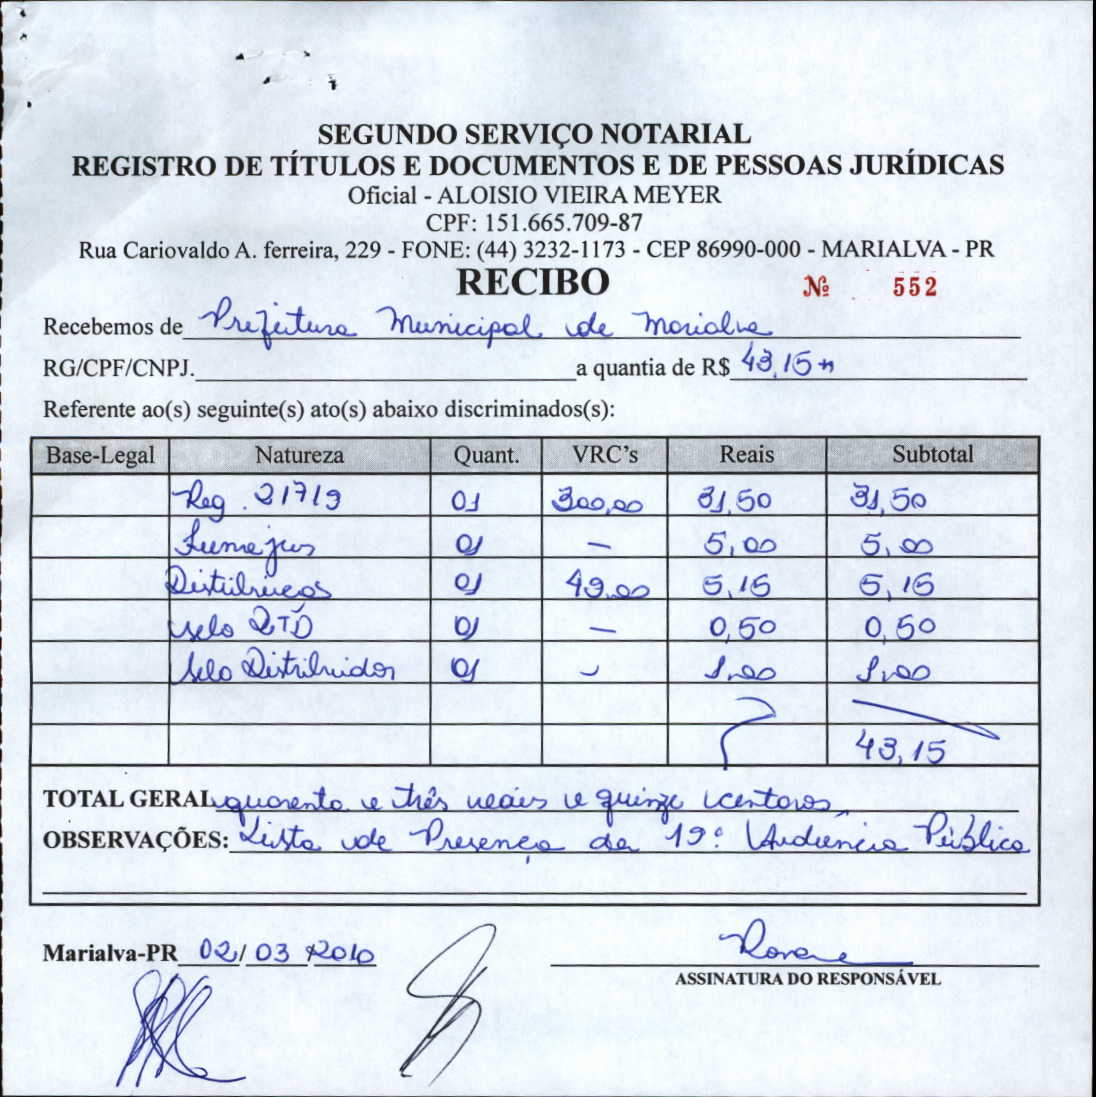 SEGUNDO SERVIÇO NOTARIAL
REGISTRO DE TÍTULOS E DOCUMENTOS E DE PESSOAS JURÍDICAS
Oficial - ALOISIO VIEIRA MEYER
CPF: 151.665.709-87
Rua Cariovaldo A. ferreira, 229 - FONE: (44) 3232-1173 - CEP 86990-000 - MARIALVA - PR
RECIBO Nº 552
Recebemos de Prefeitura Municipal de Marialva
RG/CPF/CNPJ. a quantia de R$ 43,15
Referente ao(s) seguinte(s) ato(s) abaixo discriminados(s):
Base-Legal Natureza Quant. VRC's Reais Subtotal
Reg. 21719 01 300,00 31,50 31,50
Funrejus 01 — 5,00 5,00
01 49,00 5,15 5,15
selo RTD 01 — 0,50 0,50
selo Distribuidor 01 - 1,00 1,00
43,15
TOTAL GERAL quarenta e três reais e quinze centavos
OBSERVAÇÕES: Lista de Presença da 19ª Audiência Pública
Marialva-PR 02/03/2010
ASSINATURA DO RESPONSÁVEL